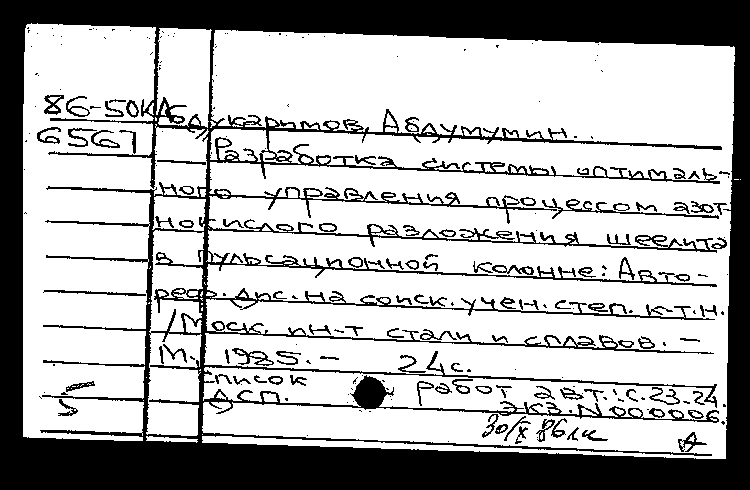 86-50КА
6567
Абдукаримов, Абдумумин..
Разработка системы оптималь-
ного управления процессом азот-
нокислого разложения шеелита
в пульсационной колонне: Авто-
реф. дис. на соиск. учен. степ. к-т.н.
/Моск. ин-т стали и сплавов. –
М., 1985. – 24с.
Список работ авт.: с. 23.24.
ДСП. Экз. N 000006.
5
30/X 86